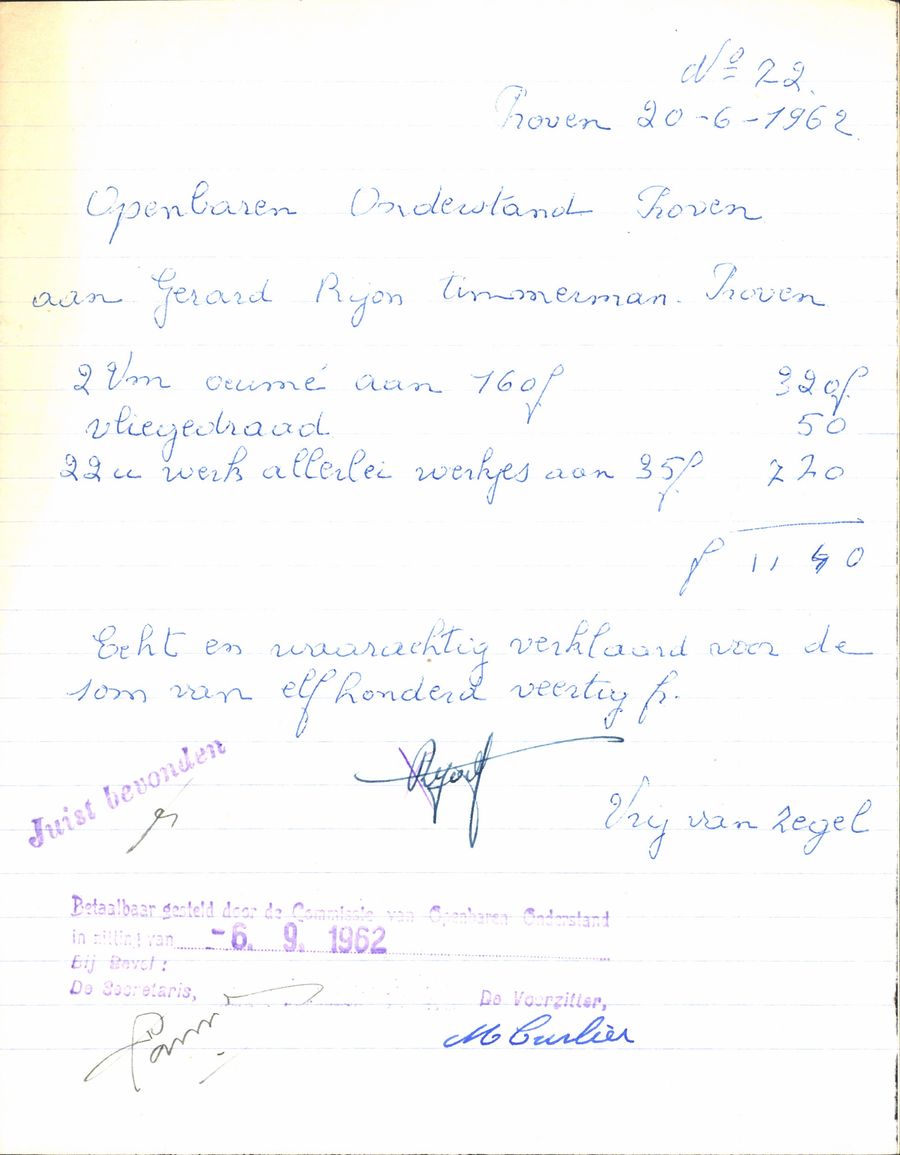 No 72.
Proven 20-6-1962
Openbaren Onderstand Proven
aan Gerard Rijon timmerman. Proven
2 Vm oeumé aan 160f 320f.
vliegedraad 50
22 u werk allerlei werkjes aan 35f. 770
f 1140
Echt en waarachtig verklaard voor de
som van elfhonderd veertig fr.
Juist bevonden
Vrij van zegel
Betaalbaar gesteld door de Commissie van Openbaren Onderstand
in zitting van -6. 9. 1962
Bij Bevel:
De Secretaris, De Voorzitter,